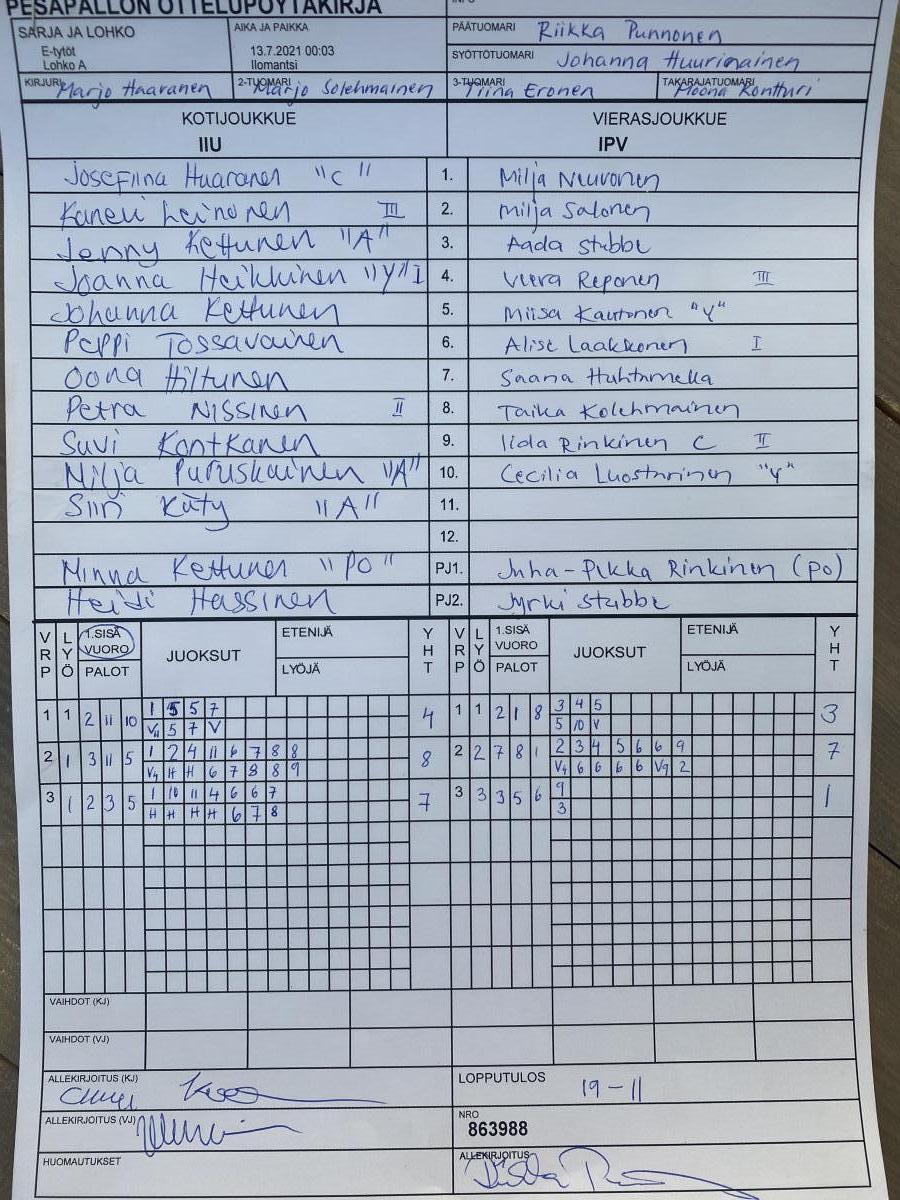 PESÄPALLON OTTELUPÖYTÄKIRJA
SARJA JA LOHKO
E-tytöt
Lohko A
AIKA JA PAIKKA
13.7.2021 00:03
Ilomantsi
PÄÄTUOMARI Riikka Punnonen
SYÖTTÖTUOMARI Johanna Huurinainen
KIRJURI Marjo Haaranen 2-TUOMARI Marjo Solehmainen 3-TUOMARI Tiina Eronen TAKARAJATUOMARI Moona Kontturi
KOTIJOUKKUE VIERASJOUKKUE
IIU IPV
Josefiina Haaranen "C" 1. Milja Neuvonen
Kaneli Leinonen III 2. Milja Salonen
Jenny Kettunen "A" 3. Aada Stubbe
Joanna Heikkinen "Y" I 4. Veera Reponen III
Johanna Kettunen 5. Miisa Kautonen "Y"
Peppi Tossavainen 6. Alise Laakkonen I
Oona Hiltunen 7. Saana Huhtamella
Petra Nissinen II 8. Taika Kolehmainen
Suvi Kontkanen 9. Iida Rinkinen C II
Milja Puruskainen "A" 10. Cecilia Luostarinen "Y"
Siiri Käty "A" 11.
12.
Minna Kettunen "PO" PJ1. Juha-Pekka Rinkinen (po)
Heidi Hassinen PJ2. Jyrki Stubbe
VRP LYÖ 1.SISÄ VUORO PALOT JUOKSUT ETENIJÄ LYÖJÄ YHT VRP LYÖ 1.SISÄ VUORO PALOT JUOKSUT ETENIJÄ LYÖJÄ YHT
1 1 2 11 10 1 5 5 7 4 1 1 2 1 8 3 4 5 3
V11 5 7 V 5 10 V
2 1 3 11 5 1 2 4 11 6 7 8 8 8 2 2 7 8 1 2 3 4 5 6 6 9 7
V4 H H 6 7 8 8 9 V4 6 6 6 6 V9 2
3 1 2 3 5 1 10 11 4 6 6 7 7 3 3 3 5 6 9 1
H H H H 6 7 8 3
VAIHDOT (KJ)
VAIHDOT (VJ)
ALLEKIRJOITUS (KJ)
LOPPUTULOS 19-11
ALLEKIRJOITUS (VJ)
NRO
863988
HUOMAUTUKSET
ALLEKIRJOITUS